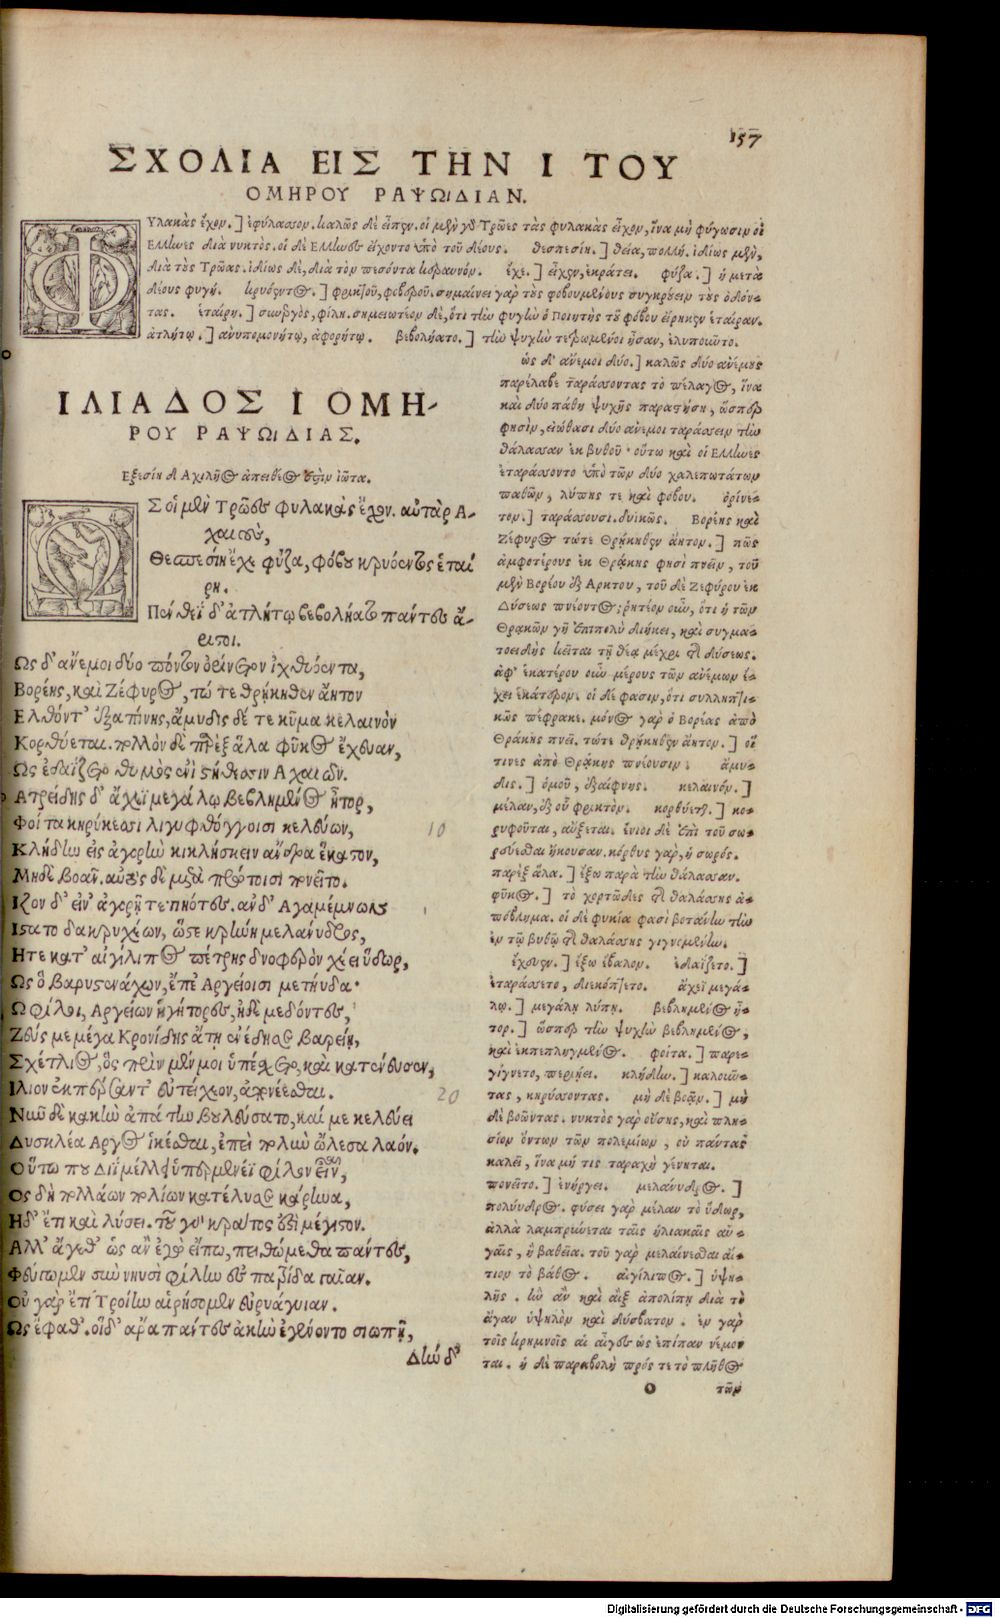 157
ΣΧΟΛΙΑ ΕΙΣ ΤΗΝ Ι ΤΟΥ
ΟΜΗΡΟΥ ΡΑΨΩΙΔΙΑΝ.
ΦΥλακὰς ἔχον.] ἐφύλασσον. καλῶς δὲ εἶπεν. οἱ μὲν γὸ Τρῶες τὰς φυλακὰς εἶχον, ἵνα μὴ φύγωσιν οἱ
Ελληνες διὰ νυκτός. οἱ δὲ Ελληνες εἴχοντο ὑπὸ τοῦ δέους. θεσπεσίη.] θεία, πολλή. ἰδίως μὲν,
διὰ τοὺς Τρῶας. ἰδίως δὲ, διὰ τὸν πεσόντα κεραυνόν. ἔχε.] εἶχεν, ἐκράτει. φύζα.] ἡ μετὰ
δέους φυγή. κρυόεντος.] φρικτοῦ, φοβεροῦ. σημαίνει γὰρ τοὺς φοβουμένους συγκρούειν τοὺς ὀδόν-
τας. ἑταίρη.] συνεργὸς, φίλη. σημειωτέον δὲ, ὅτι τὴν φυγὴν ὁ ποιητὴς τοῦ φόβου εἴρηκεν ἑταίραν.
ἀτλήτῳ.] ἀνυπομονήτῳ, ἀφορήτῳ. βεβολήατο.] τὴν ψυχὴν τετρωμένοι ἦσαν, ἐλυποῦντο.
ὡς δ' ἄνεμοι δύο.] καλῶς δύο ἀνέμους
παρέλαβε ταράσσοντας τὸ πέλαγος, ἵνα
καὶ δύο πάθη ψυχῆς παραστήσῃ, ὥσπερ
φησὶν, εἰώθασι δύο ἄνεμοι ταράσσειν τὴν
θάλασσαν ἐκ βυθοῦ· οὕτω καὶ οἱ Ελληνες
ἐταράσσοντο ὑπὸ τῶν δύο χαλεπωτάτων
παθῶν, λύπης τε καὶ φόβου. ὀρίνε-
τον.] ταράσσουσι. δυϊκῶς. Βορέης καὶ
Ζέφυρος τώτε Θρῄκηθεν ἄητον.] πῶς
ἀμφοτέρους ἐκ Θρᾴκης φησὶ πνεῖν, τοῦ
μὲν Βορέου ἐξ Αρκτου, τοῦ δὲ Ζεφύρου ἐκ
Δύσεως πνέοντος; ῥητέον οὖν, ὅτι ἡ τῶν
Θρᾳκῶν γῆ ἐπιπολὺ διήκει, καὶ συγμα-
τοειδὴς κεῖται τῇ θέᾳ μέχρι τῆς δύσεως.
ἀφ' ἑκατέρου οὖν μέρους τῶν ἀνέμων ἔ-
χει ἑκάτερον. οἱ δέ φασιν, ὅτι συλληπτι-
κῶς πέφρακε. μόνος γὰρ ὁ Βορέας ἀπὸ
Θρᾴκης πνεῖ. τώτε θρῄκηθεν ἄητον.] οἵ
τινες ἀπὸ Θρᾴκης πνέουσιν. ἄμυ-
δις.] ὁμοῦ, ἐξαίφνης. κελαινόν.]
μέλαν, ἐξ οὗ φρικτόν. κορθύεται.] κο-
ρυφοῦται, αὔξεται. ἔνιοι δὲ ἐπὶ τοῦ σω-
ρεύεσθαι ἤκουσαν. κόρθυς γὰρ, ἡ σωρός.
παρὲξ ἅλα.] ἔξω παρὰ τὴν θάλασσαν.
φῦκος.] τὸ χορτῶδες τῆς θαλάσσης ἀ-
πόβλημα. οἱ δὲ φυκία φασὶ βοτάνην τὴν
ἐν τῷ βυθῷ τῆς θαλάσσης γιγνομένην.
ἔχευεν.] ἔξω ἔβαλον. ἐδαΐζετο.]
ἐταράσσετο, διεκόπτετο. ἄχεϊ μεγά-
λῳ.] μεγάλῃ λύπῃ. βεβλημένος ἦ-
τορ.] ὥσπερ τὴν ψυχὴν βεβλημένος,
καὶ ἐκπεπληγμένος. φοίτα.] παρε-
γίγνετο, περιῄει. κλήδην.] καλοῦν-
τας, κηρύσσοντας. μὴ δὲ βοᾷν.] μὴ
δὲ βοῶντας. νυκτὸς γὰρ οὔσης, καὶ πλη-
σίον ὄντων τῶν πολεμίων, οὐ πάντας
καλεῖ, ἵνα μή τις ταραχὴ γένηται.
πονεῖτο.] ἐνήργει. μελάνυδρος.]
πολύυδρος. φύσει γὰρ μέλαν τὸ ὕδωρ,
ἀλλὰ λαμπρύνεται ταῖς ἡλιακαῖς αὐ-
γαῖς, ἢ βαθεῖα. τοῦ γὰρ μελαίνεσθαι αἴ-
τιον τὸ βάθος. αἰγίλιπος.] ὑψη-
λῆς. ἣν ἂν καὶ αἲξ ἀπολίπῃ διὰ τὸ
ἄγαν ὑψηλὸν καὶ δύσβατον. ἐν γὰρ
τοῖς κρημνοῖς αἱ αἶγες ὡς ἐπίπαν νέμον
ται. ἡ δὲ παραβολὴ πρός τε τὸ πλῆθος
ο τῶν
ΙΛΙΑΔΟΣ Ι ΟΜΗ-
ΡΟΥ ΡΑΨΩΙΔΙΑΣ.
Εξεσίη δ Αχιλῆος ἀπειθέος ἐστὶν ἰῶτα.
ΩΣ οἱ μὲν Τρῶες φυλακὰς ἔχον. αὐτὰρ Α-
χαιοὺς,
Θεσπεσίη ἔχε φύζα, φόβου κρυόεντος ἑταί
ρη.
Πένθεϊ δ' ἀτλήτῳ βεβολήατο πάντες ἄ-
ριστοι.
Ως δ' ἄνεμοι δύο πόντον ὀρίνετον ἰχθυόεντα,
Βορέης, καὶ Ζέφυρος, τώ τε θρῄκηθεν ἄητον
Ελθόντ' ἐξαπίνης, ἄμυδις δέ τε κῦμα κελαινὸν
Κορθύεται. πολλὸν δὲ παρὲξ ἅλα φῦκος ἔχευαν,
Ως ἐδαΐζετο θυμὸς ἐνὶ στήθεσιν Αχαιῶν.
Ατρείδης δ' ἄχεϊ μεγάλῳ βεβλημένος ἦτορ,
Φοίτα κηρύκεσσι λιγυφθόγγοισι κελεύων, 10
Κλήδην εἰς ἀγορὴν κικλήσκειν ἄνδρα ἕκαστον,
Μηδὲ βοᾷν. αὐτὸς δὲ μετὰ πρώτοισι πονεῖτο.
Ιζον δ' εἰν' ἀγορῇ τετιηότες. ἀνδ' Αγαμέμνων
Ιστατο δακρυχέων, ὥστε κρήνη μελάνυδρος,
Ητε κατ' αἰγίλιπος πέτρης δνοφερὸν χέει ὕδωρ,
Ως ὁ βαρυστενάχων, ἔπε' Αργείοισι μετηύδα·
Ω φίλοι, Αργείων ἡγήτορες, ἠδὲ μέδοντες,
Ζεύς με μέγα Κρονίδης ἄτῃ ἐνέδησε βαρείῃ,
Σχέτλιος, ὃς πρὶν μέν μοι ὑπέσχετο, καὶ κατένευσεν,
Ιλιον ἐκπέρσαντ' εὐτείχεον, ἀπονέεσθαι. 20
Νῦν δὲ κακὴν ἀπάτην βουλεύσατο, καί με κελεύει
Δυσκλέα Αργος ἱκέσθαι, ἐπεὶ πολὺν ὤλεσα λαόν.
Οὕτω που Διῒ μέλλει ὑπερμενέϊ φίλον εἶναι,
Ος δὴ πολλάων πολίων κατέλυσε κάρηνα,
Ηδ' ἔτι καὶ λύσει. τοῦ γὸ κράτος ἐστὶ μέγιστον.
Αλλ' ἄγεθ' ὡς ἂν ἐγὼ εἴπω, πειθώμεθα πάντες,
Φεύγωμεν σὺν νηυσὶ φίλην ἐς πατρίδα γαῖαν.
Οὐ γὰρ ἔτι Τροίην αἱρήσομεν εὐρυάγυιαν.
Ως ἔφαθ'. οἱ δ' ἄρα πάντες ἀκὴν ἐγένοντο σιωπῇ,
Δὴν δ'
Digitalisierung gefördert durch die Deutsche Forschungsgemeinschaft - DFG